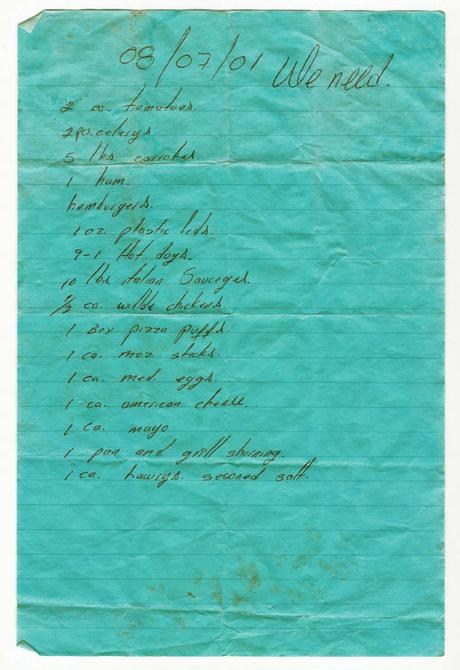 08/07/01 We need.
2 ca. tomatoes.
2 pcs. celerys
5 lbs carrotes
1 ham.
hamburgers.
1 oz. plastic lids.
9-1 Hot dogs.
10 lbs italian Sauceges.
1/2 ca. wilde chickens.
1 Box pizza puffs.
1 ca. moz. sticks.
1 ca. med. eggs.
1 ca. american cheese.
1 ca. mayo
1 pan and grill shining.
1 ca. lawrys seconed salt.